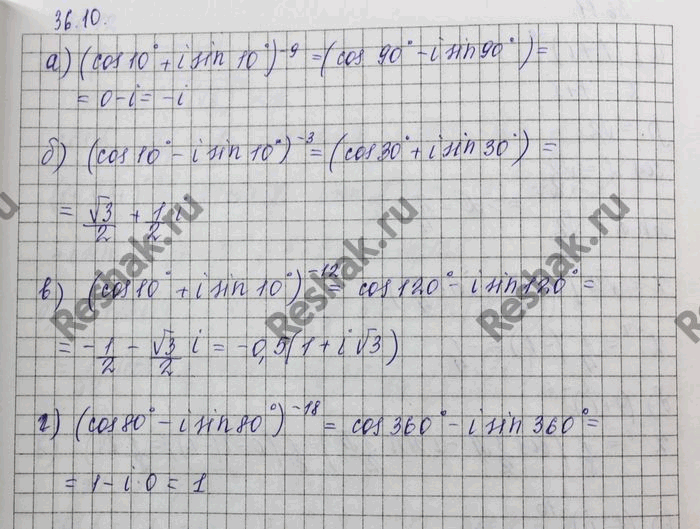 36.10.
а) (cos 10° + i sin 10°)⁻⁹ = (cos 90° - i sin 90°) =
= 0 - i = -i
б) (cos 10° - i sin 10°)⁻³ = (cos 30° + i sin 30°) =
= √3/2 + 1/2 i
в) (cos 10° + i sin 10°)⁻¹² = cos 120° - i sin 120° =
= - 1/2 - √3/2 i = -0,5(1 + i√3)
г) (cos 80° - i sin 80°)⁻¹⁸ = cos 360° - i sin 360° =
= 1 - i · 0 = 1
Reshak.ru
Reshak.ru
Reshak.ru